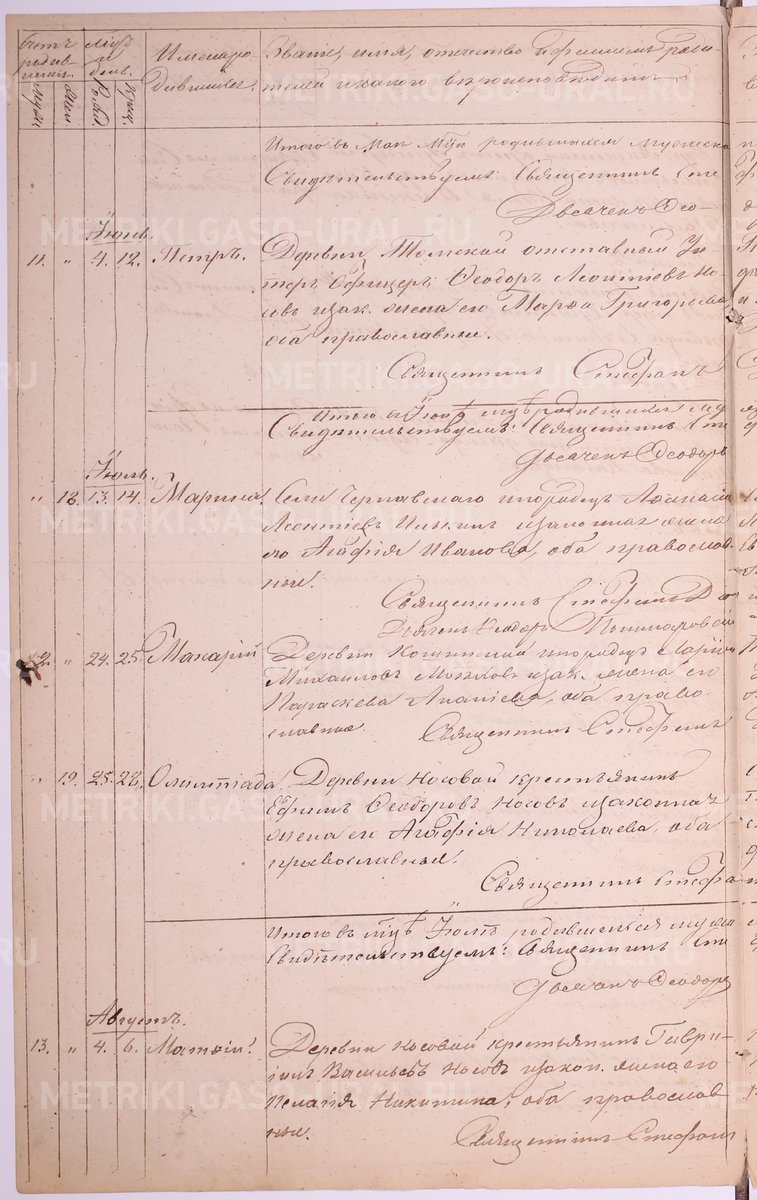 Счетъ родив-шихся.
Мцъ и день.
Имена ро-дившихся.
Званіе, имя, отчество и фамилія роди-
телей и какого вѣроисповѣданія.
муж.
жен.
Рожд.
Крещ.
Итого въ Маѣ мцѣ родившихся мужеска
Свидѣтельствуемъ: Священникъ Сте
Дьячекъ Ѳео-
Іюнь.
11. " 4. 12. Петръ. Деревни Томской отставный Ун-
теръ Офицеръ Ѳеодоръ Леонтіевъ Но-
совъ и зак. жена его Марѳа Григорьева
оба православные.
Священникъ Стефанъ
Итого въ Іюнѣ мцѣ родившихся му
Свидѣтельствуемъ: Священникъ Сте
Дьячекъ Ѳеодоръ
Іюль.
" 18. 13. 14. Марина. Села Чернавскаго инородецъ Аѳанасій
Леонтіевъ и законная жена
его Агафія Иванова, оба православ-
ные.
Священникъ Стефанъ
Дьячекъ Ѳеодоръ
12. " 24. 25. Макарій Деревни инородецъ
Михайловъ и зак. жена его
Параскева Ананіева, оба право-
славные.
Священникъ Стефанъ
" 19. 25. 28. Олимпіада. Деревни Носовой крестьянинъ
Ефимъ Ѳеодоровъ Носовъ и законная
жена его Агафія Николаева, оба
православные.
Священникъ Стефа
Итого въ мцѣ Іюлѣ родившихся муже
Свидѣтельствуемъ: Священникъ Сте
Дьячекъ Ѳеодоръ
Августъ.
13. " 4. 6. Матѳій. Деревни Носовой крестьянинъ Гаври-
илъ Васильевъ Носовъ и закон. жена его
Пелагія Никитина, оба православ-
ные.
Священникъ Стефанъ
METRIKI.GASO-URAL.RU